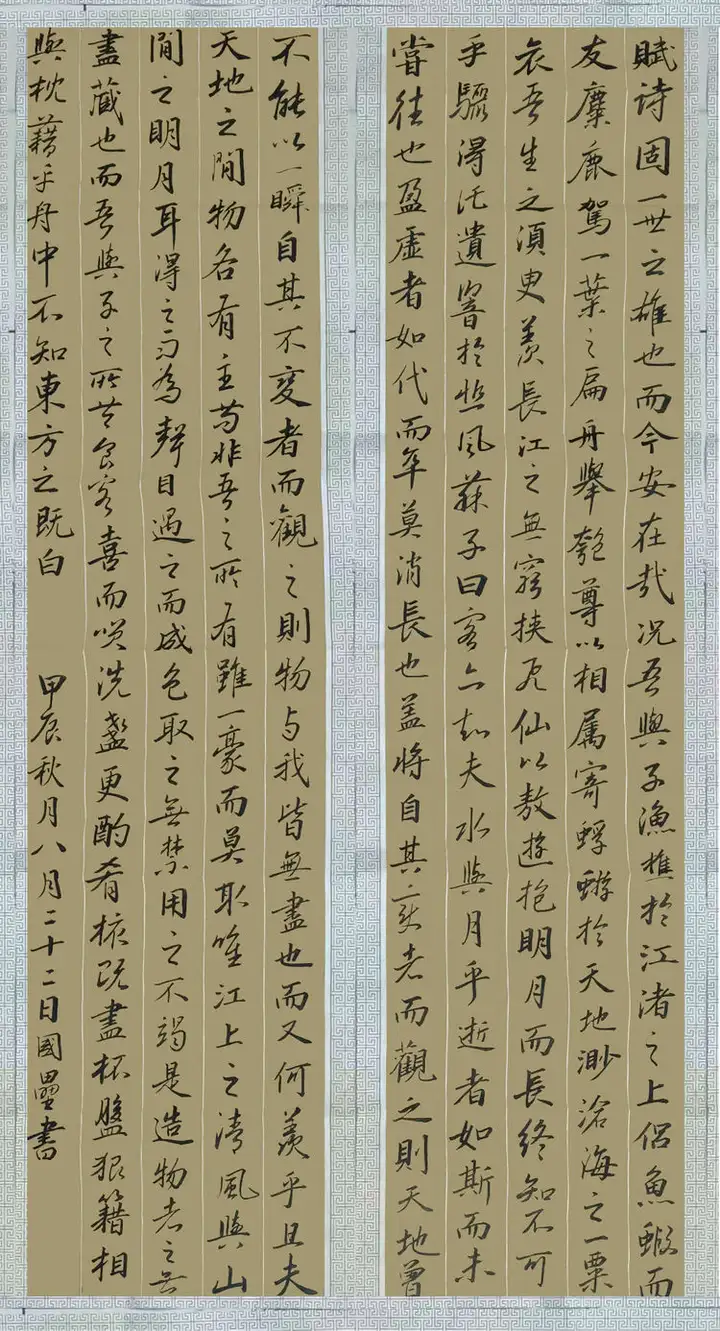 賦诗固一世之雄也而今安在哉况吾與子漁樵於江渚之上侣魚蝦而
友麋鹿駕一葉之扁舟舉匏尊以相属寄蜉蝣於天地渺沧海之一粟
哀吾生之須臾羡長江之無窮挟飛仙以敖遊抱明月而長終知不可
乎驟得讬遺響於悲風蘇子曰客亦知夫水與月乎逝者如斯而未
嘗往也盈虚者如代而卒莫消長也盖將自其變者而觀之則天地曾
不能以一瞬自其不变者而觀之則物与我皆無盡也而又何羨乎且夫
天地之間物各有主苟非吾之所有雖一豪而莫取唯江上之清風與山
間之明月耳得之而為聲目遇之而成色取之無禁用之不竭是造物者之無
盡藏也而吾與子之所共食客喜而笑洗盞更酌肴核既盡杯盤狼籍相
與枕藉乎舟中不知東方之既白
甲辰秋月八月二十二日國壘書